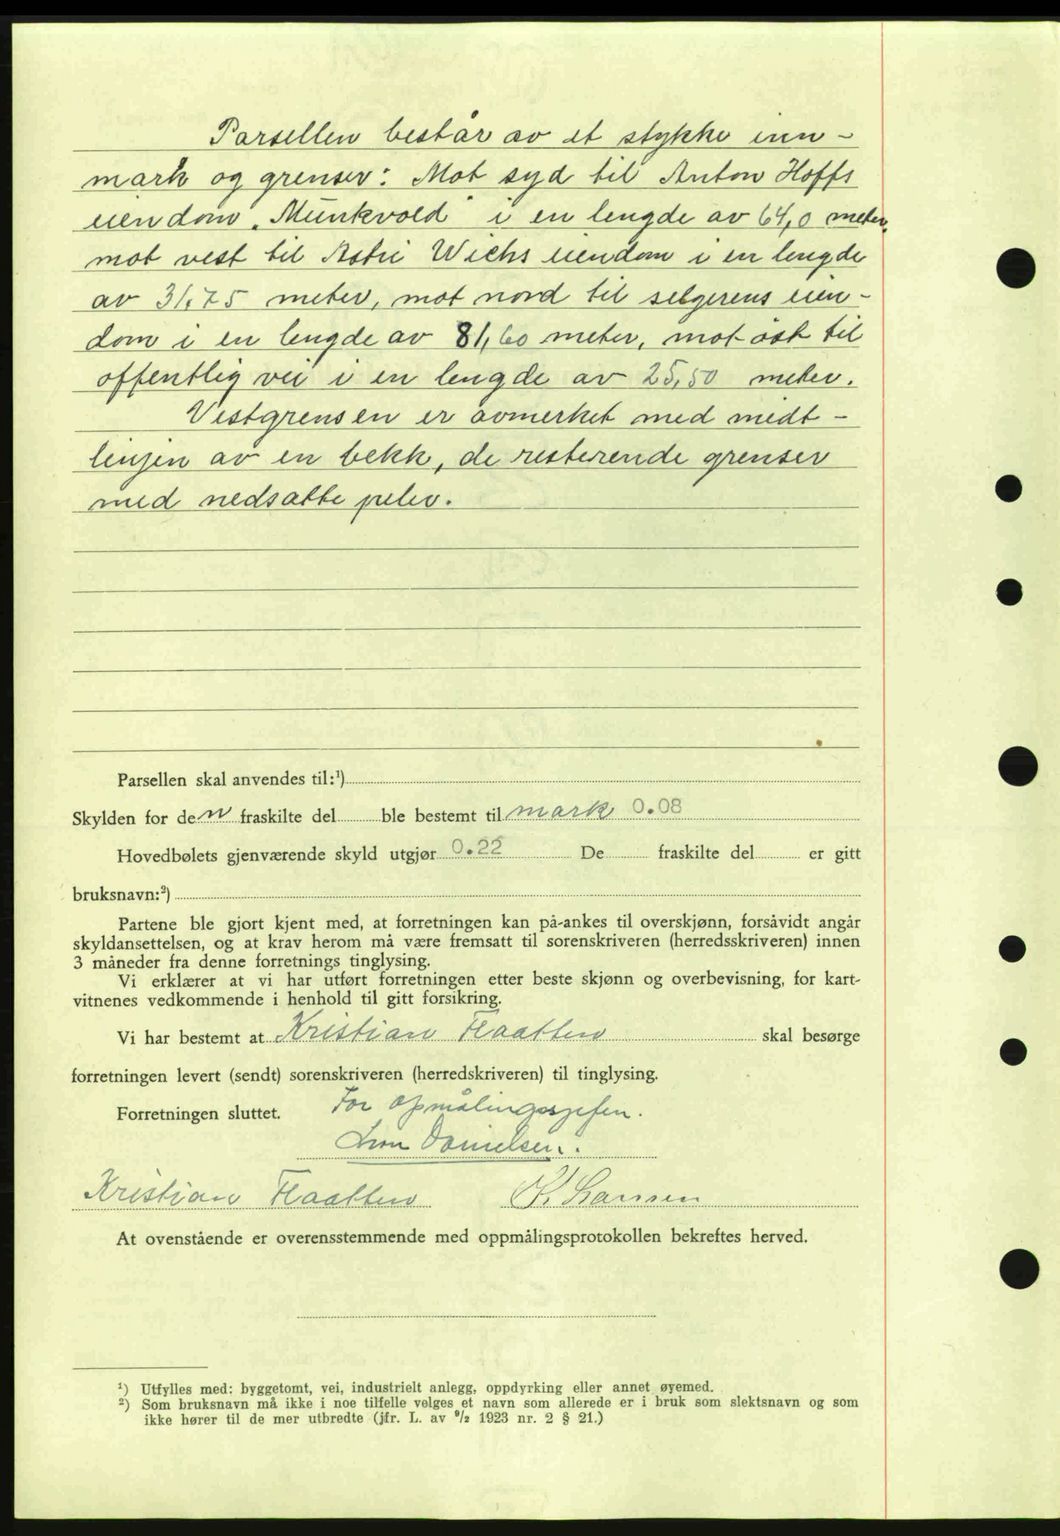 Parsellen består av et stykke inn-
mark og grenser: Mot syd til Anton Hoffs
eiendom „Munkvold" i en lengde av 64,0 meter,
mot vest til Astri Wichs eiendom i en lengde
av 31,75 meter, mot nord til selgerens eien-
dom i en lengde av 81,60 meter, mot øst til
offentlig vei i en lengde av 25,50 meter.
Vestgrensen er avmerket med midt-
linjen av en bekk, de resterende grenser
med nedsatte peler.
Parsellen skal anvendes til:¹)
Skylden for den fraskilte del ble bestemt til mark 0.08
Hovedbølets gjenværende skyld utgjør 0.22 De fraskilte del er gitt
bruksnavn:²)
Partene ble gjort kjent med, at forretningen kan på-ankes til overskjønn, forsåvidt angår
skyldansettelsen, og at krav herom må være fremsatt til sorenskriveren (herredsskriveren) innen
3 måneder fra denne forretnings tinglysing.
Vi erklærer at vi har utført forretningen etter beste skjønn og overbevisning, for kart-
vitnenes vedkommende i henhold til gitt forsikring.
Vi har bestemt at Kristian Flaatten skal besørge
forretningen levert (sendt) sorenskriveren (herredskriveren) til tinglysing.
Forretningen sluttet. For opmålingssjefen.
Danielsen.
Kristian Flaatten K. Larssen
At ovenstående er overensstemmende med oppmålingsprotokollen bekreftes herved.
¹) Utfylles med: byggetomt, vei, industrielt anlegg, oppdyrking eller annet øyemed.
²) Som bruksnavn må ikke i noe tilfelle velges et navn som allerede er i bruk som slektsnavn og som
ikke hører til de mer utbredte (jfr. L. av ⁹/₂ 1923 nr. 2 § 21.)